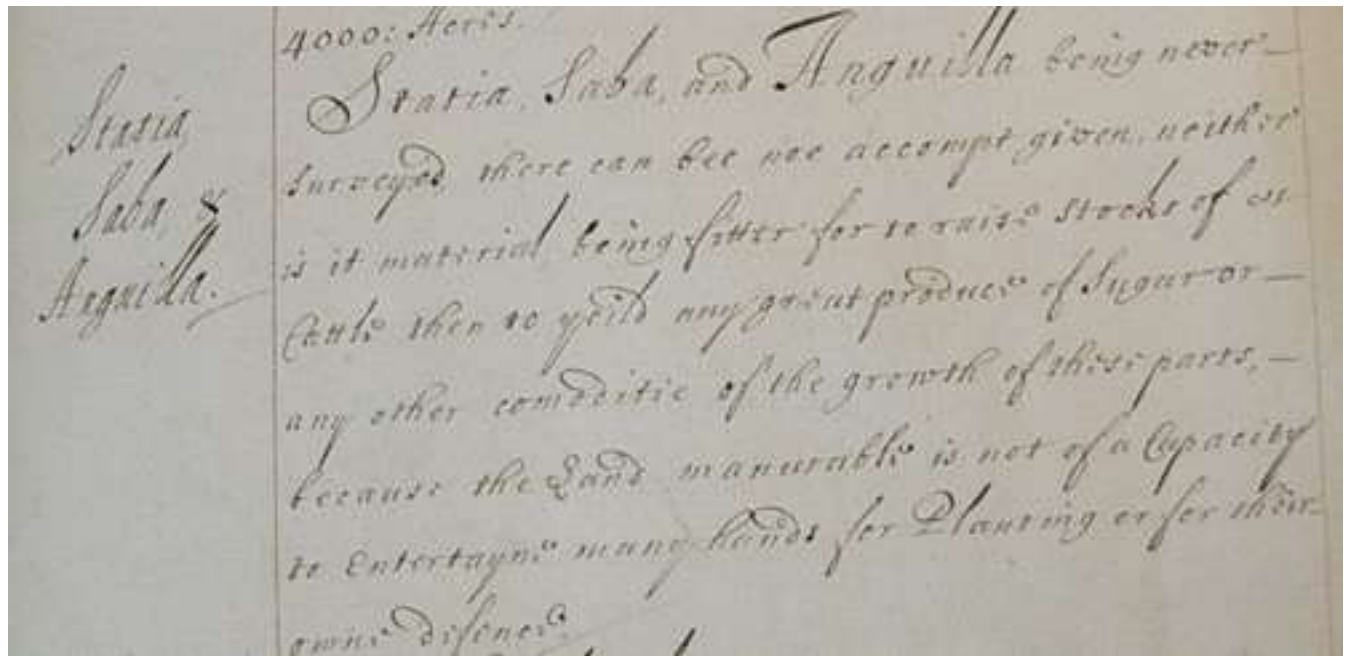 4000: Acres.
Statia, Saba, and Anguilla being never
surveyed there can bee noe accompt given, neither
is it material being fitter for to raise Stocks of
Cattle then to yeild any great produce of Sugar or
any other comoditie of the growth of these parts,
because the Land manurable is not of a Capacity
to Entertayne many hands for Planting or for their
owne defence.
Statia,
Saba, &
Anguilla.